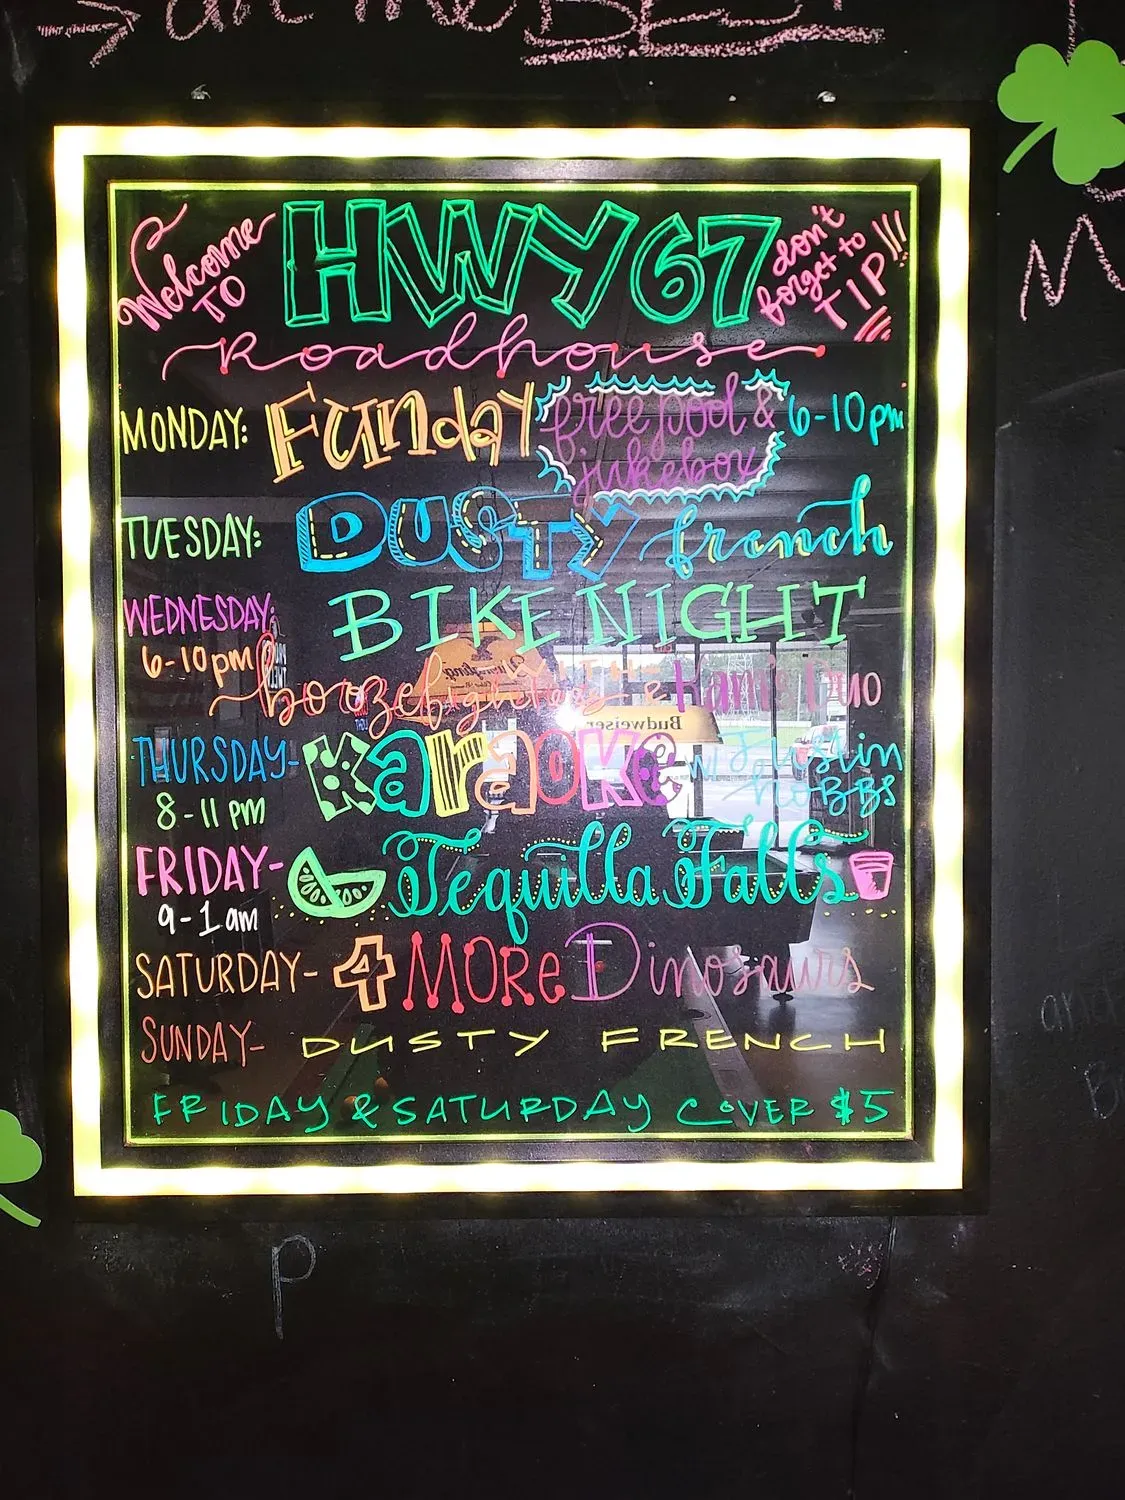 all the BEST
Welcome TO HWY 67 don't forget to TIP!!!
Roadhouse
MONDAY: Funday free pool & jukebox 6-10pm
TUESDAY: DUSTY french
WEDNESDAY: BIKE NIGHT
6-10pm boozefighters WITH & Kami Duo
THURSDAY- Karaoke w/ Justin HOBBS
8-11 pm
FRIDAY- Tequilla Falls
9-1am
SATURDAY- 4 MORE Dinosaurs
SUNDAY- DUSTY FRENCH
FRIDAY & SATURDAY COVER $5
Budweiser
Yuengling
M
and
B
P